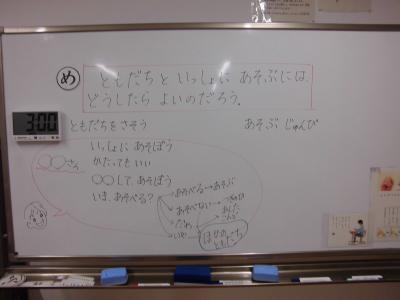 め ともだちと いっしょに あそぶには、
どうしたら よいのだろう。
3:00
ともだちをさそう
あそぶ じゅんび
いっしょに あそぼう
○○さん
かたってもいい
○○して、あそぼう
いま、あそべる?
あそべる→あそぶ
あそべない
だめ
いや
ほかの
ともだち